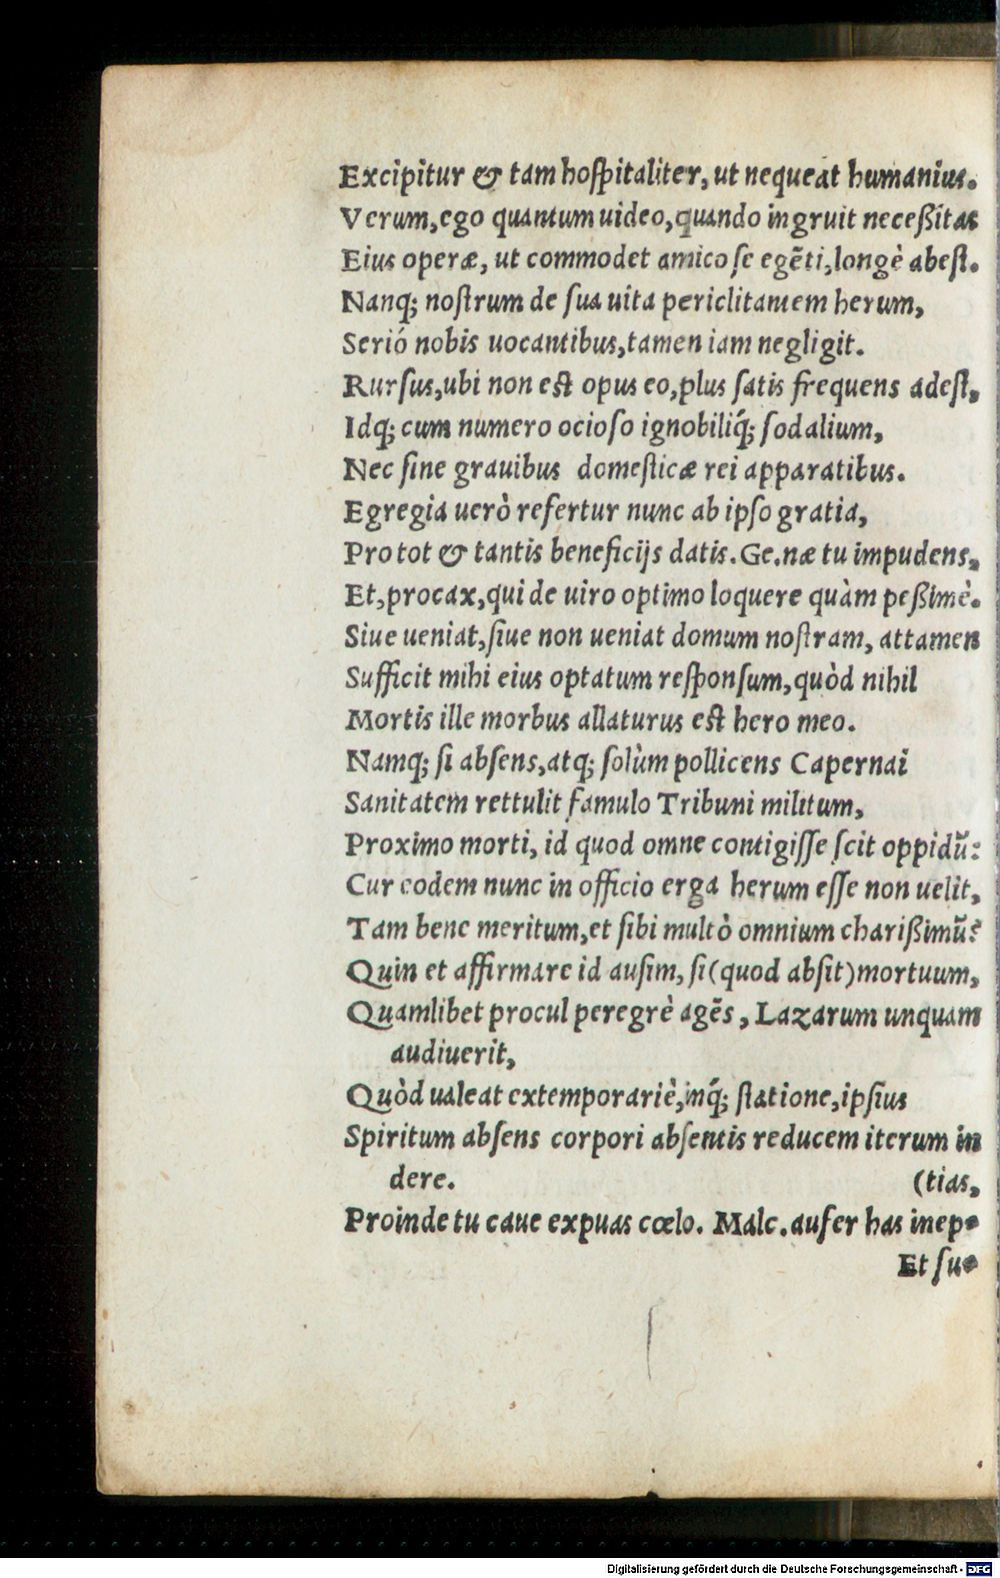 Excipitur & tam hoſpitaliter, ut nequeat humanius.
Verum, ego quantum uideo, quando ingruit neceßitas
Eius operæ, ut commodet amico ſe egẽti, longè abeſt.
Nanq; noſtrum de ſua uita periclitantem herum,
Serió nobis uocantibus, tamen iam negligit.
Rurſus, ubi non eſt opus eo, plus ſatis frequens adeſt,
Idq; cum numero ocioſo ignobiliq́; ſodalium,
Nec ſine grauibus domeſticæ rei apparatibus.
Egregia uerò refertur nunc ab ipſo gratia,
Pro tot & tantis beneficijs datis. Ge. næ tu impudens,
Et, procax, qui de uiro optimo loquere quàm peßimè.
Siue ueniat, ſiue non ueniat domum noſtram, attamen
Sufficit mihi eius optatum reſponſum, quòd nihil
Mortis ille morbus allaturus eſt hero meo.
Namq; ſi abſens, atq; ſolùm pollicens Capernai
Sanitatem rettulit famulo Tribuni militum,
Proximo morti, id quod omne contigiſſe ſcit oppidũ:
Cur eodem nunc in officio erga herum eſſe non uelit,
Tam bene meritum, et ſibi multò omnium charißimũ?
Quin et affirmare id auſim, ſi (quod abſit) mortuum,
Quamlibet procul peregrè agẽs, Lazarum unquam
audiuerit,
Quòd ualeat extemporariè, inq́; ſtatione, ipſius
Spiritum abſens corpori abſentis reducem iterum in
dere. (tias,
Proinde tu caue expuas cœlo. Malc. aufer has inep-
Et ſu-
Digitalisierung gefördert durch die Deutsche Forschungsgemeinschaft - DFG